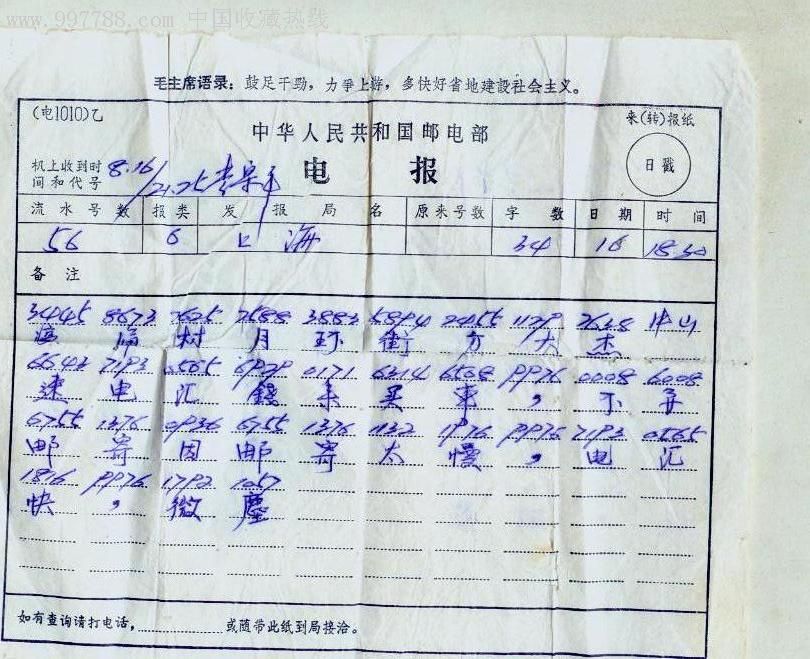 www.997788.com 中国收藏热线
毛主席语录：鼓足干劲，力争上游，多快好省地建設社会主义。
(电1010)乙
中华人民共和国邮电部
来(转)报纸
机上收到时间和代号 8.16/21.25
电 报
日戳
流水号数 报类 发报局名 原来号数 字数 日期 时间
56 6 上海 34 16 18.30
备注
3445 8673 2625 2588 3883 5894 2455 1129 2638 中山
村 月 环 街 方 大 杰
6643 7193 0565 6929 0171 6314 6508 9976 0008 6008
速 电 汇 錢 来 买 車 ， 不 弄
6755 1376 0936 6755 1376 1132 1976 9976 7193 0565
邮 寄 因 邮 寄 太 慢 ， 电 汇
1816 9976 1792 1057
快 ， 微 塵
如有查询请打电话，或随带此纸到局接洽。